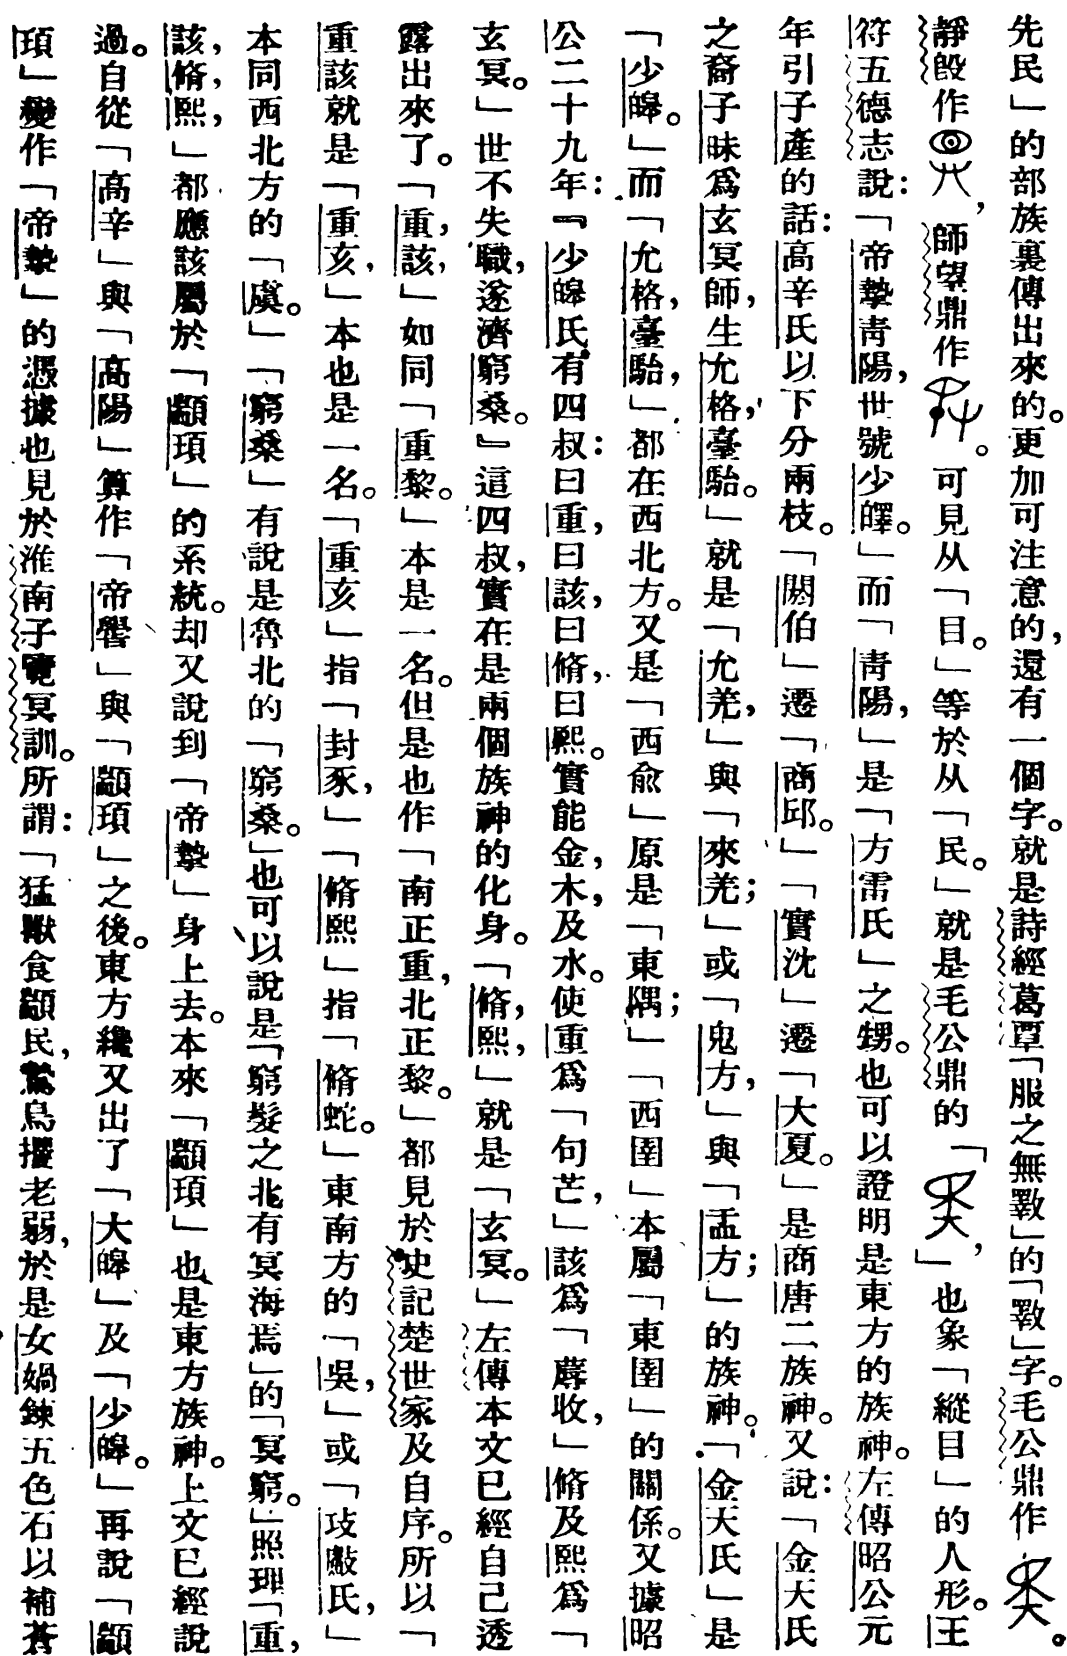 先民」的部族裏傳出來的。更加可注意的，還有一個字。就是詩經葛覃「服之無斁」的「斁」字。毛公鼎作。
靜𣪘作，師望鼎作。可見从「目。」等於从「民。」就是毛公鼎的「」，也象「縱目」的人形。王
符五德志說：「帝摯靑陽，世號少皞。」而「靑陽，」是「方雷氏」之甥。也可以證明是東方的族神。左傳昭公元
年引子產的話：高辛氏以下分兩枝。「閼伯」遷「商邱。」「實沈」遷「大夏。」是商唐二族神。又說：「金天氏
之裔子昧爲玄冥師，生允格，臺駘。」就是「允羌，」與「來羌；」或「鬼方，」與「盂方；」的族神。「金天氏」是
「少皞。」而「允格，臺駘，」都在西北方。又是「西俞」原是「東隅；」「西圉」本屬「東圉」的關係。又據昭
公二十九年：『少皞氏有四叔：曰重，曰該，曰脩，曰熙。實能金，木，及水。使重爲「句芒，」該爲「蓐收，」脩及熙爲「
玄冥。」世不失職，遂濟窮桑。』這四叔，實在是兩個族神的化身。「脩，熙，」就是「玄冥。」左傳本文已經自己透
露出來了。「重，該，」如同「重黎。」本是一名。但是也作「南正重，北正黎。」都見於史記楚世家及自序。所以「
重該就是「重亥，」本也是一名。「重亥」指「封豕，」「脩熙」指「脩蛇。」東南方的「吳，」或「攻敔氏，」
本同西北方的「虞。」「窮桑」有說是魯北的「窮桑。」也可以說是「窮髮之北有冥海焉」的「冥窮。」照理「重，
該，脩，熙，」都應該屬於「顓頊」的系統。却又說到「帝摯」身上去。本來「顓頊」也是東方族神。上文已經說
過。自從「高辛」與「高陽」算作「帝嚳」與「顓頊」之後。東方纔又出了「大皞」及「少皞。」再說「顓
頊」變作「帝摯」的憑據也見於淮南子覽冥訓。所謂：「猛獸食顓民，鷙鳥攫老弱，於是女媧鍊五色石以補蒼